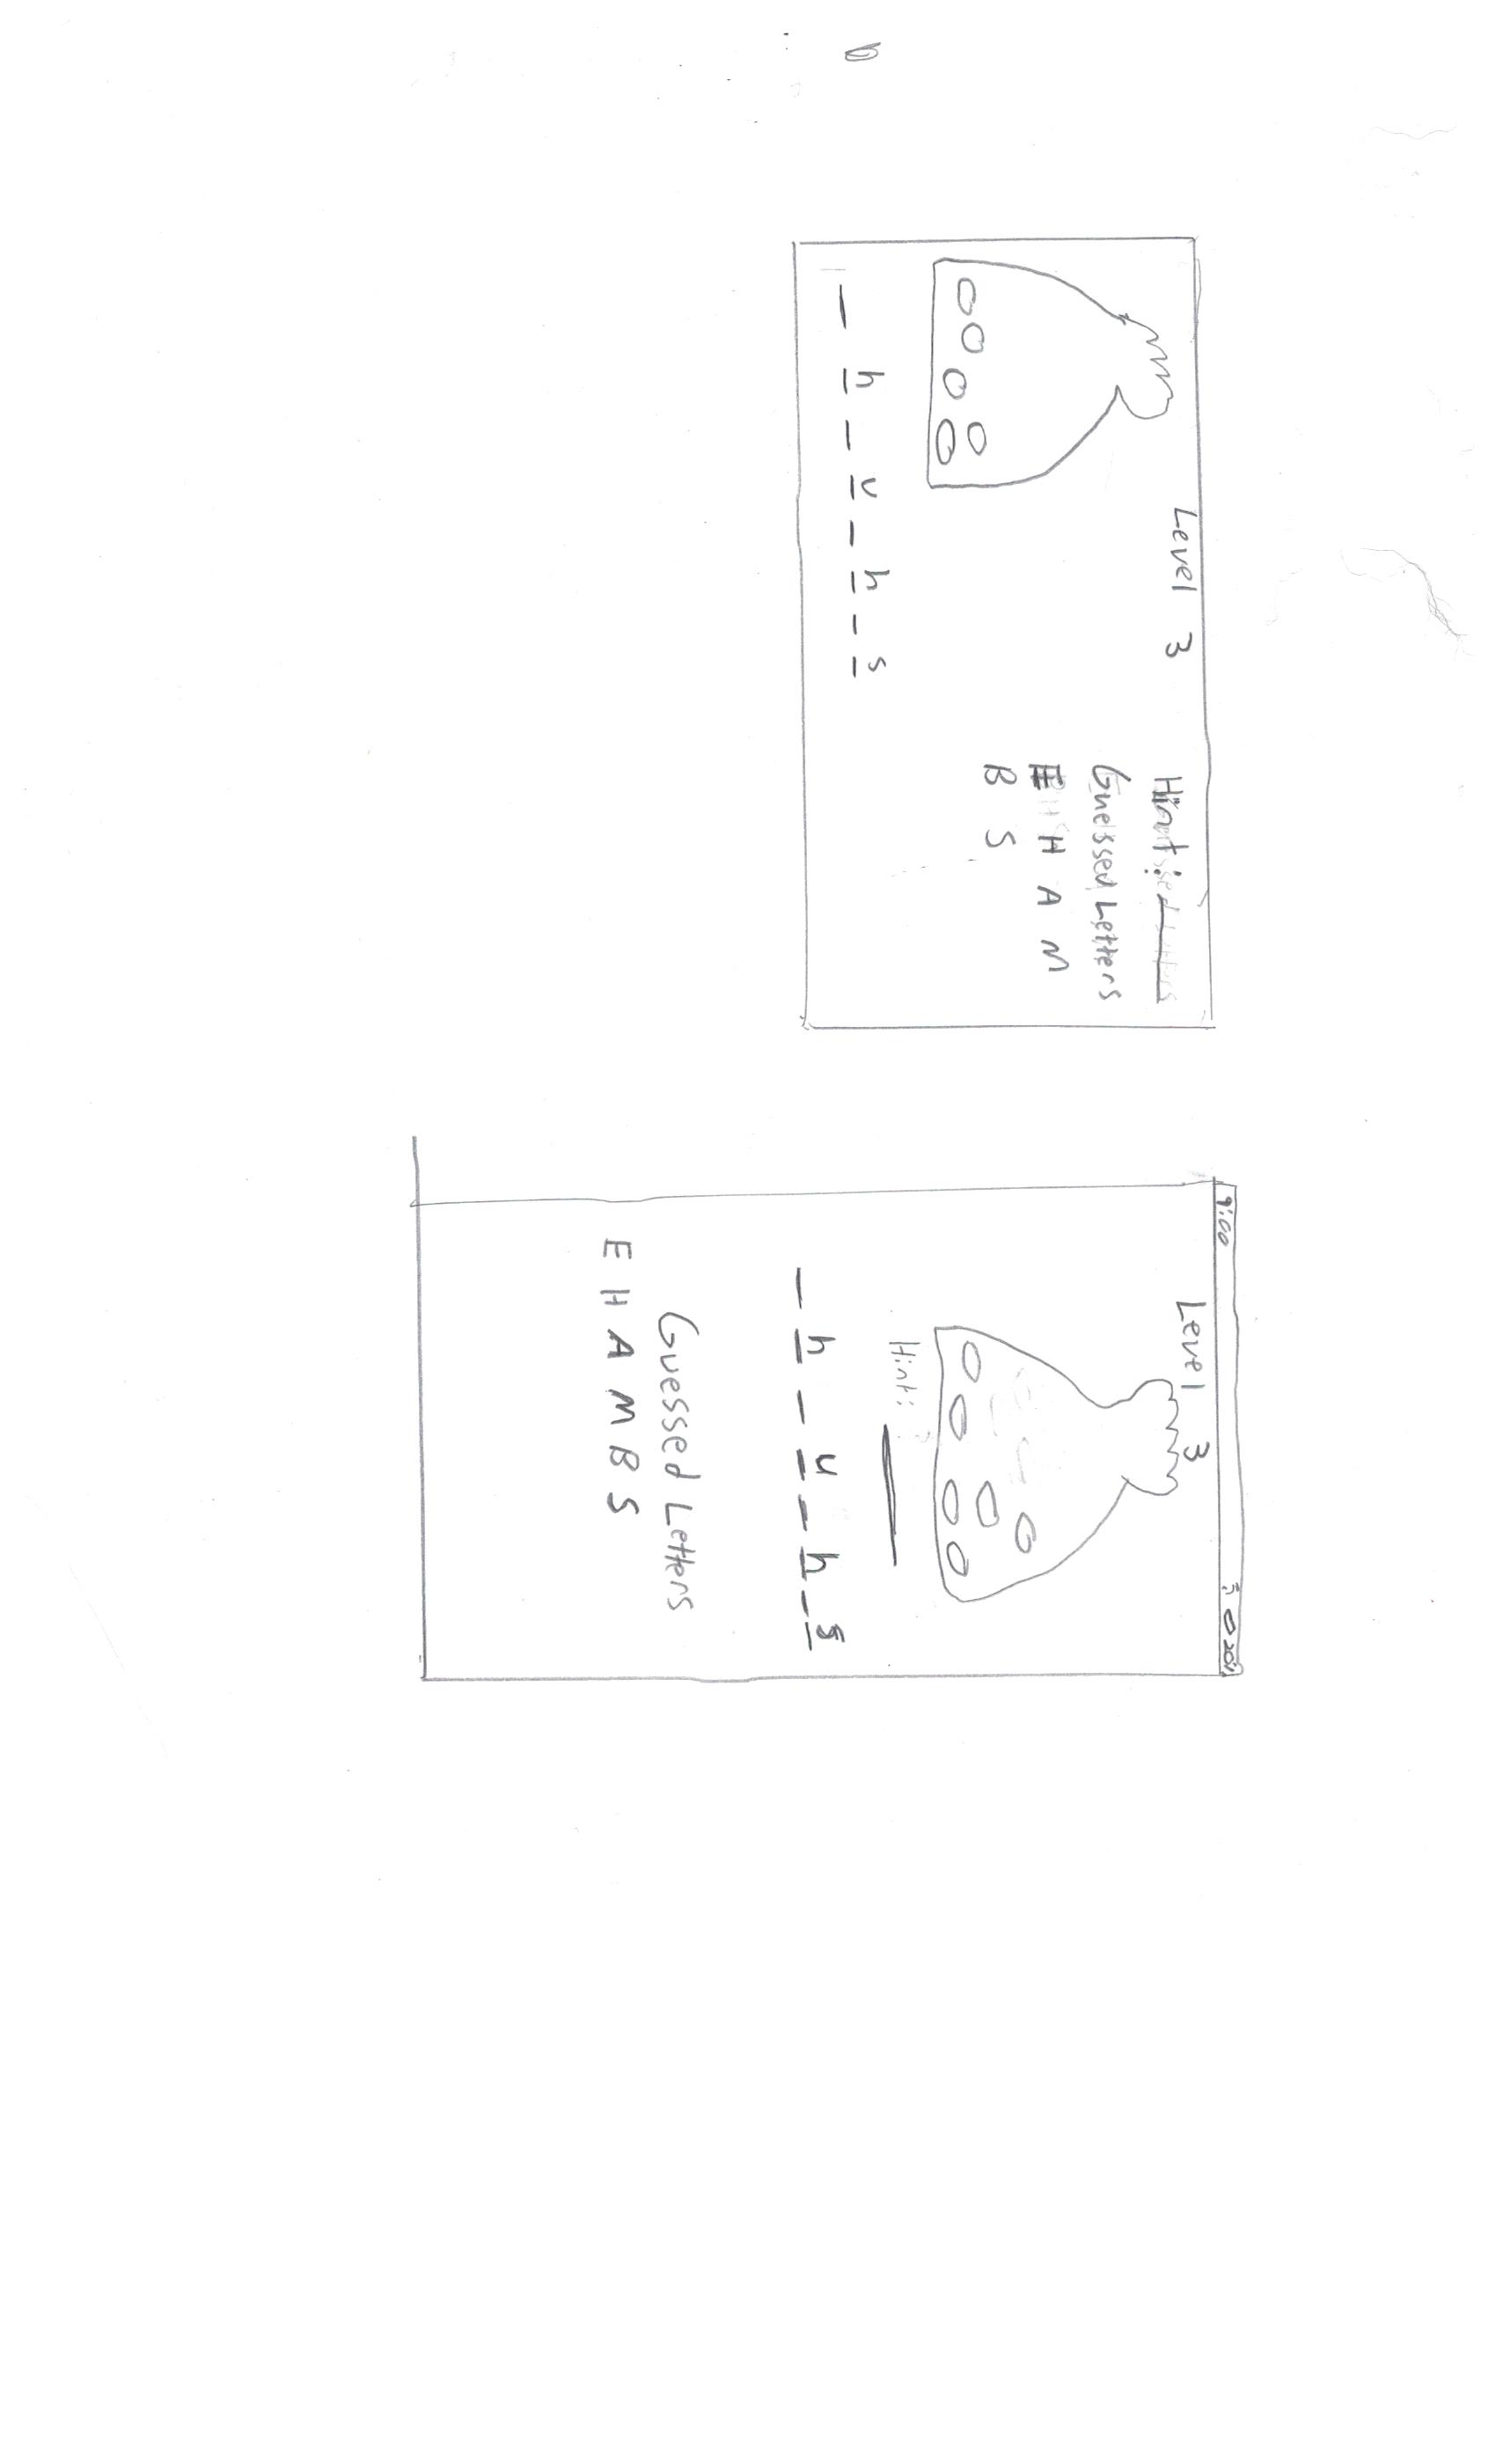 Level 3
Hint:
Guessed Letters
E H A M
B S
_ h _ u _ h _ s
9:00
Level 3
Hint:
_ h _ u _ h _ s
Guessed Letters
E H A M B S